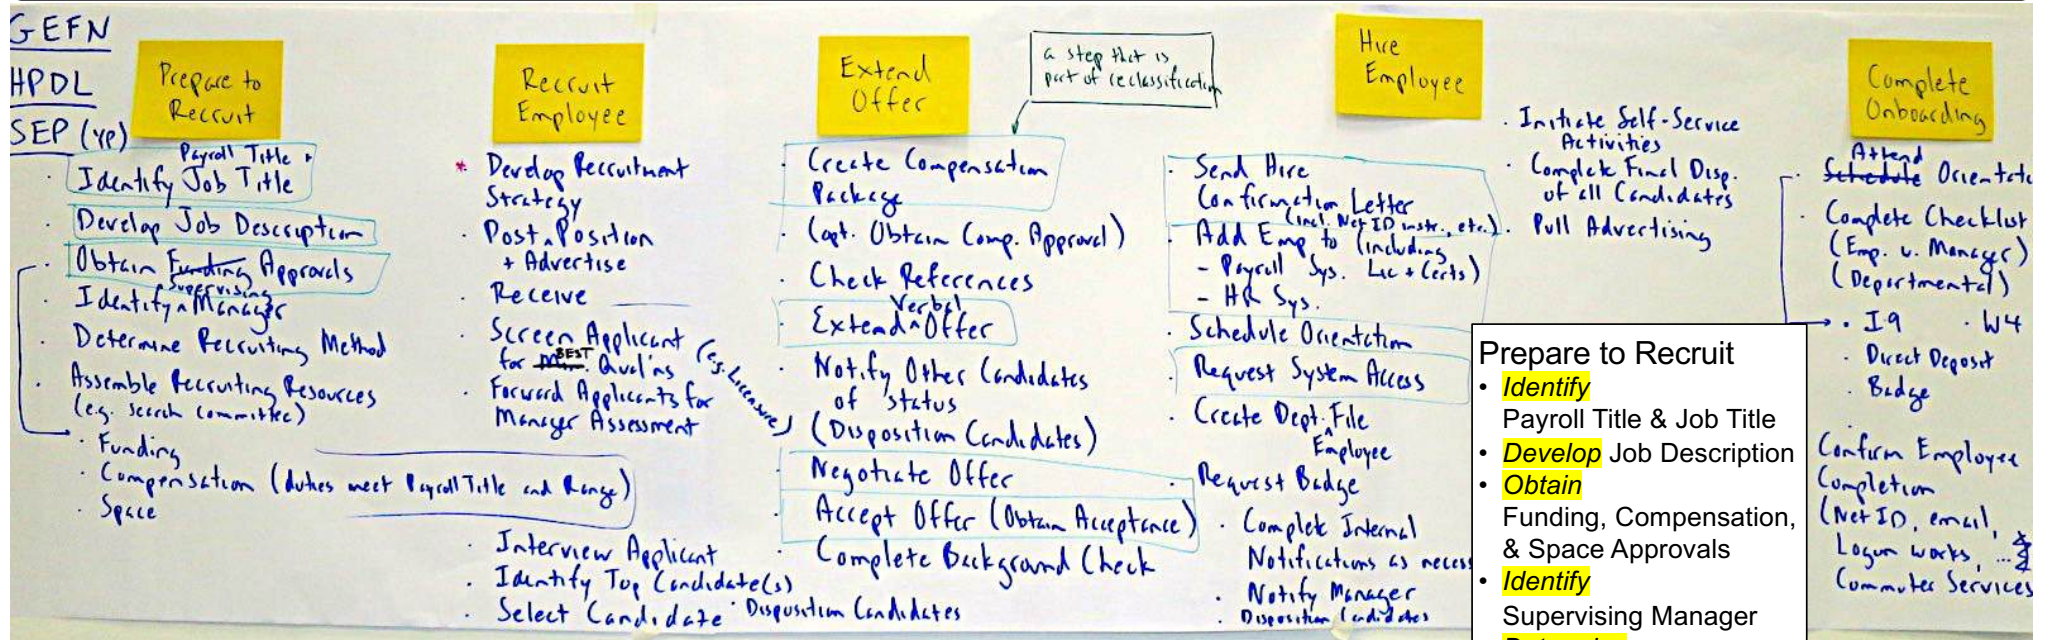 GEFN
HPDL
SEP (YP)
Prepare to
Recruit
Payroll Title +
· Identify Job Title
· Develop Job Description
· Obtain Funding Approvals
Supervising
· Identify ^ Manager
· Determine Recruiting Method
· Assemble Recruiting Resources
(e.g. search committee)
· Funding
· Compensation (duties meet Payroll Title and Range)
· Space
Recruit
Employee
* Develop Recruitment
Strategy
· Post ^ Position
+ Advertise
· Receive
· Screen Applicant (e.g. Licensure)
for BEST Qual'ns
· Forward Applicants for
Manager Assessment
· Interview Applicant
· Identify Top Candidate(s)
· Select Candidate · Disposition Candidates
Extend
Offer
a step that is
part of reclassification
· Create Compensation
Package
· (opt. Obtain Comp. Approval)
· Check References
Verbal
· Extend ^ Offer
· Notify Other Candidates
of status
(Disposition Candidates)
· Negotiate Offer
· Accept Offer (Obtain Acceptance)
· Complete Background Check
Hire
Employee
· Send Hire
Confirmation Letter
(incl. Net ID instr., etc.)
· Add Emp to (including
- Payroll Sys. Lic + Certs)
- HR Sys.
· Schedule Orientation
· Request System Access
· Create Dept. ^ File
Employee
· Request Badge
· Complete Internal
Notifications as necess
· Notify Manager
· Disposition Candidates
· Initiate Self-Service
Activities
· Complete Final Disp.
of all Candidates
· Pull Advertising
Complete
Onboarding
Attend
· Schedule Orientatio
· Complete Checklist
(Emp. v. Manager)
(Departmental)
· I9 · W4
· Direct Deposit
· Badge
Confirm Employee
Completion
(Net ID, email,
Logon works, ...
Commuter Services
Prepare to Recruit
• Identify
Payroll Title & Job Title
• Develop Job Description
• Obtain
Funding, Compensation,
& Space Approvals
• Identify
Supervising Manager